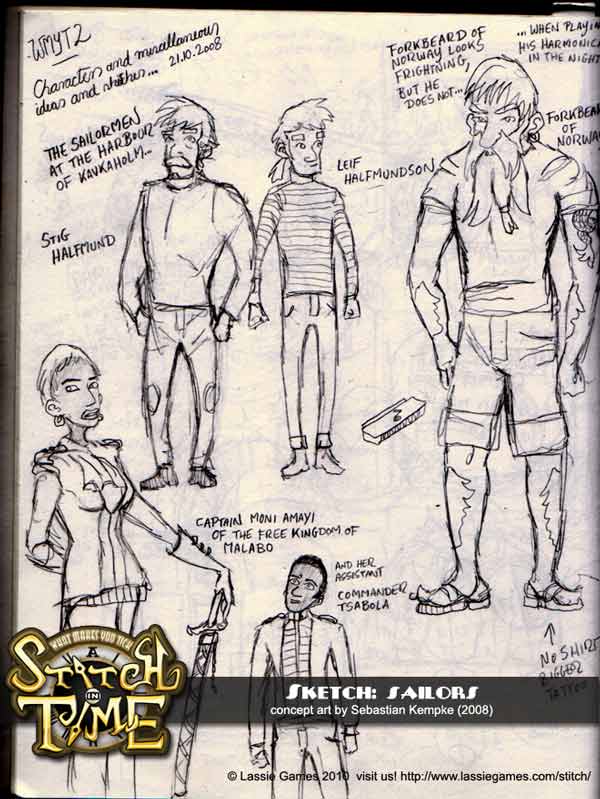 WMYT2
Characters and miscellaneous
ideas and sketches... 21.10.2008
THE SAILORMEN
AT THE HARBOUR
OF KAVKAHOLM...
STIG
HALFMUND
LEIF
HALFMUNDSON
FORKBEARD OF
NORWAY LOOKS
FRIGHTNING,
BUT HE
DOES NOT...
... WHEN PLAYIN
HIS HARMONICA
IN THE NIGHT
FORKBEARD
OF
NORWAY
CAPTAIN MONI AMAYI
OF THE FREE KINGDOM OF
MALABO
AND HER
ASSISTANT
COMMANDER
TSABOLA
NO SHIRT
BIGGER
TATTOO
WHAT MAKES YOU TICK
A
STITCH
IN
TIME
SKETCH: SAILORS
concept art by Sebastian Kempke (2008)
© Lassie Games 2010 visit us! http://www.lassiegames.com/stitch/